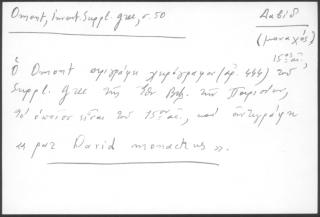 Omont, Invent. Suppl. grec, σ. 50
Δαβίδ
(μοναχός)
15ος αἰ.
Ὁ Omont περιγράφει χειρόγραφον (ἀρ. 444) τοῦ
Suppl. Grec τῆς Ἐθν. Βιβ. τῶν Παρισίων,
τὸ ὁποῖον εἶναι τοῦ 15ου αἰ. καὶ ἀντεγράφη
« par David monachus ».